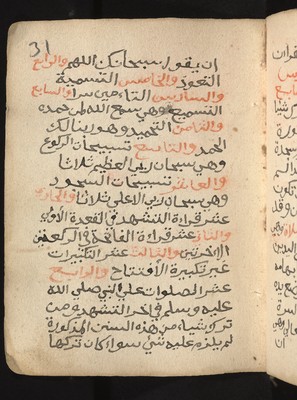 31
ان يقول سبحانك اللهم والرابع
التعوذ والخامس التسمية
والسادس التامين سرا والسابع
التسميع وهو سمع الله لمن حمده
والثامن التحميد وهو ربنا لك
الحمد والتاسع تسبيحات الركوع
وهي سبحان ربي العظيم ثلاثا
والعاشر تسبيحات السجود
وهي سبحان ربي الاعلى ثلاثا والحادي
عشر قراءة التشهد في القعدة الاولى
والثاني عشر قراءة الفاتحة في الركعتين
الاخرتين والثالث عشر التكبيرات
غير تكبيرة الافتتاح والرابع
عشر الصلوات على النبي صلى الله
عليه وسلم في اخر التشهد ومن
ترك شياء من هذه السنن المذكورة
لم يلزمه عليه شي سوا كان تركها